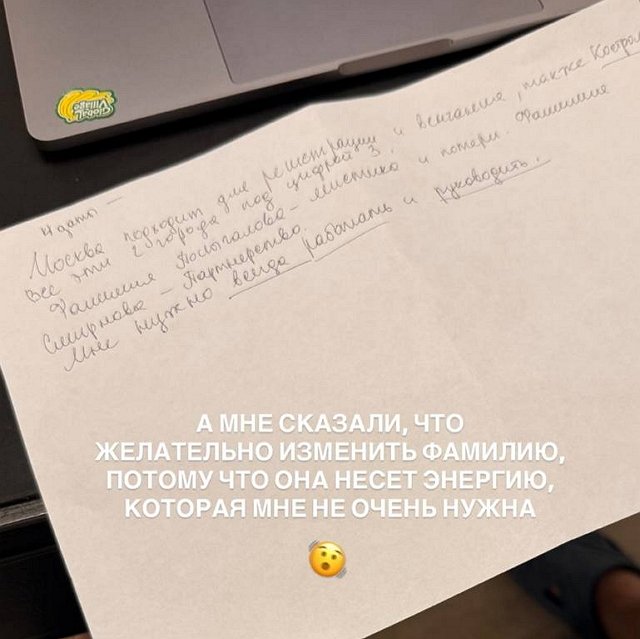 Global Village
4 даты —
Москва подходит для регистрации и венчания, также Костром
все эти 2 города под цифрой 3.
Фамилия Посыпалова – мистика и потери. Фамилия
Смирнова – Партнерство.
Мне нужно всегда работать и руководить.
А МНЕ СКАЗАЛИ, ЧТО
ЖЕЛАТЕЛЬНО ИЗМЕНИТЬ ФАМИЛИЮ,
ПОТОМУ ЧТО ОНА НЕСЕТ ЭНЕРГИЮ,
КОТОРАЯ МНЕ НЕ ОЧЕНЬ НУЖНА